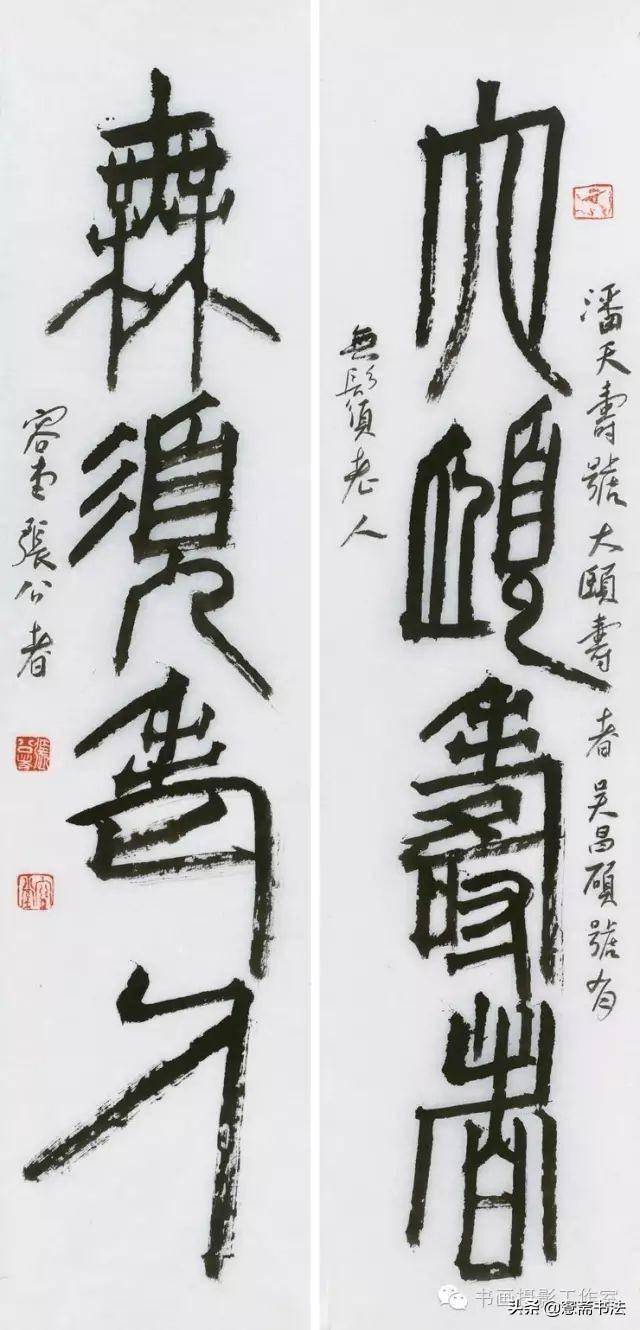 大頤壽者
潘天壽號大頤壽者吴昌碩號有
無鬚須老人
無須老人
容堂張公者
书画摄影工作室
头条@窓斋书法